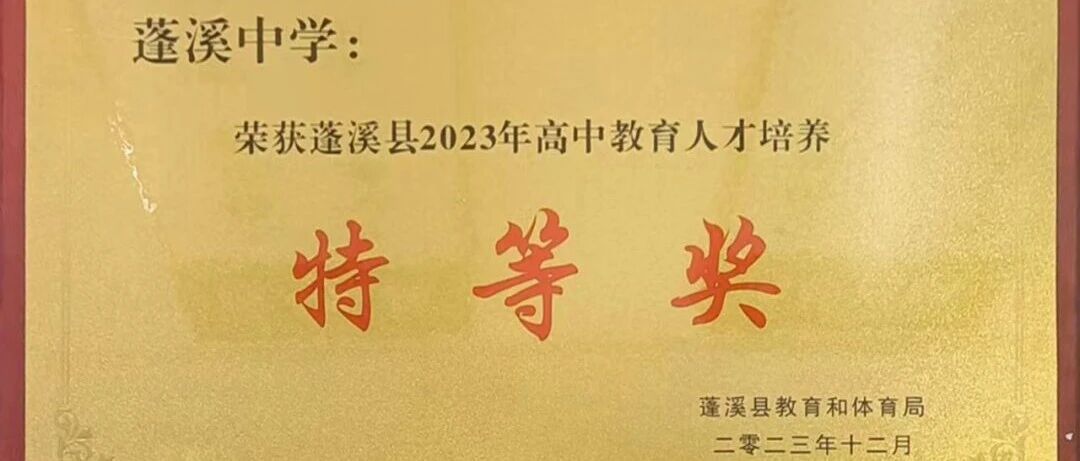 蓬溪中学：
荣获蓬溪县2023年高中教育人才培养
特等奖
蓬溪县教育和体育局
二零二三年十二月